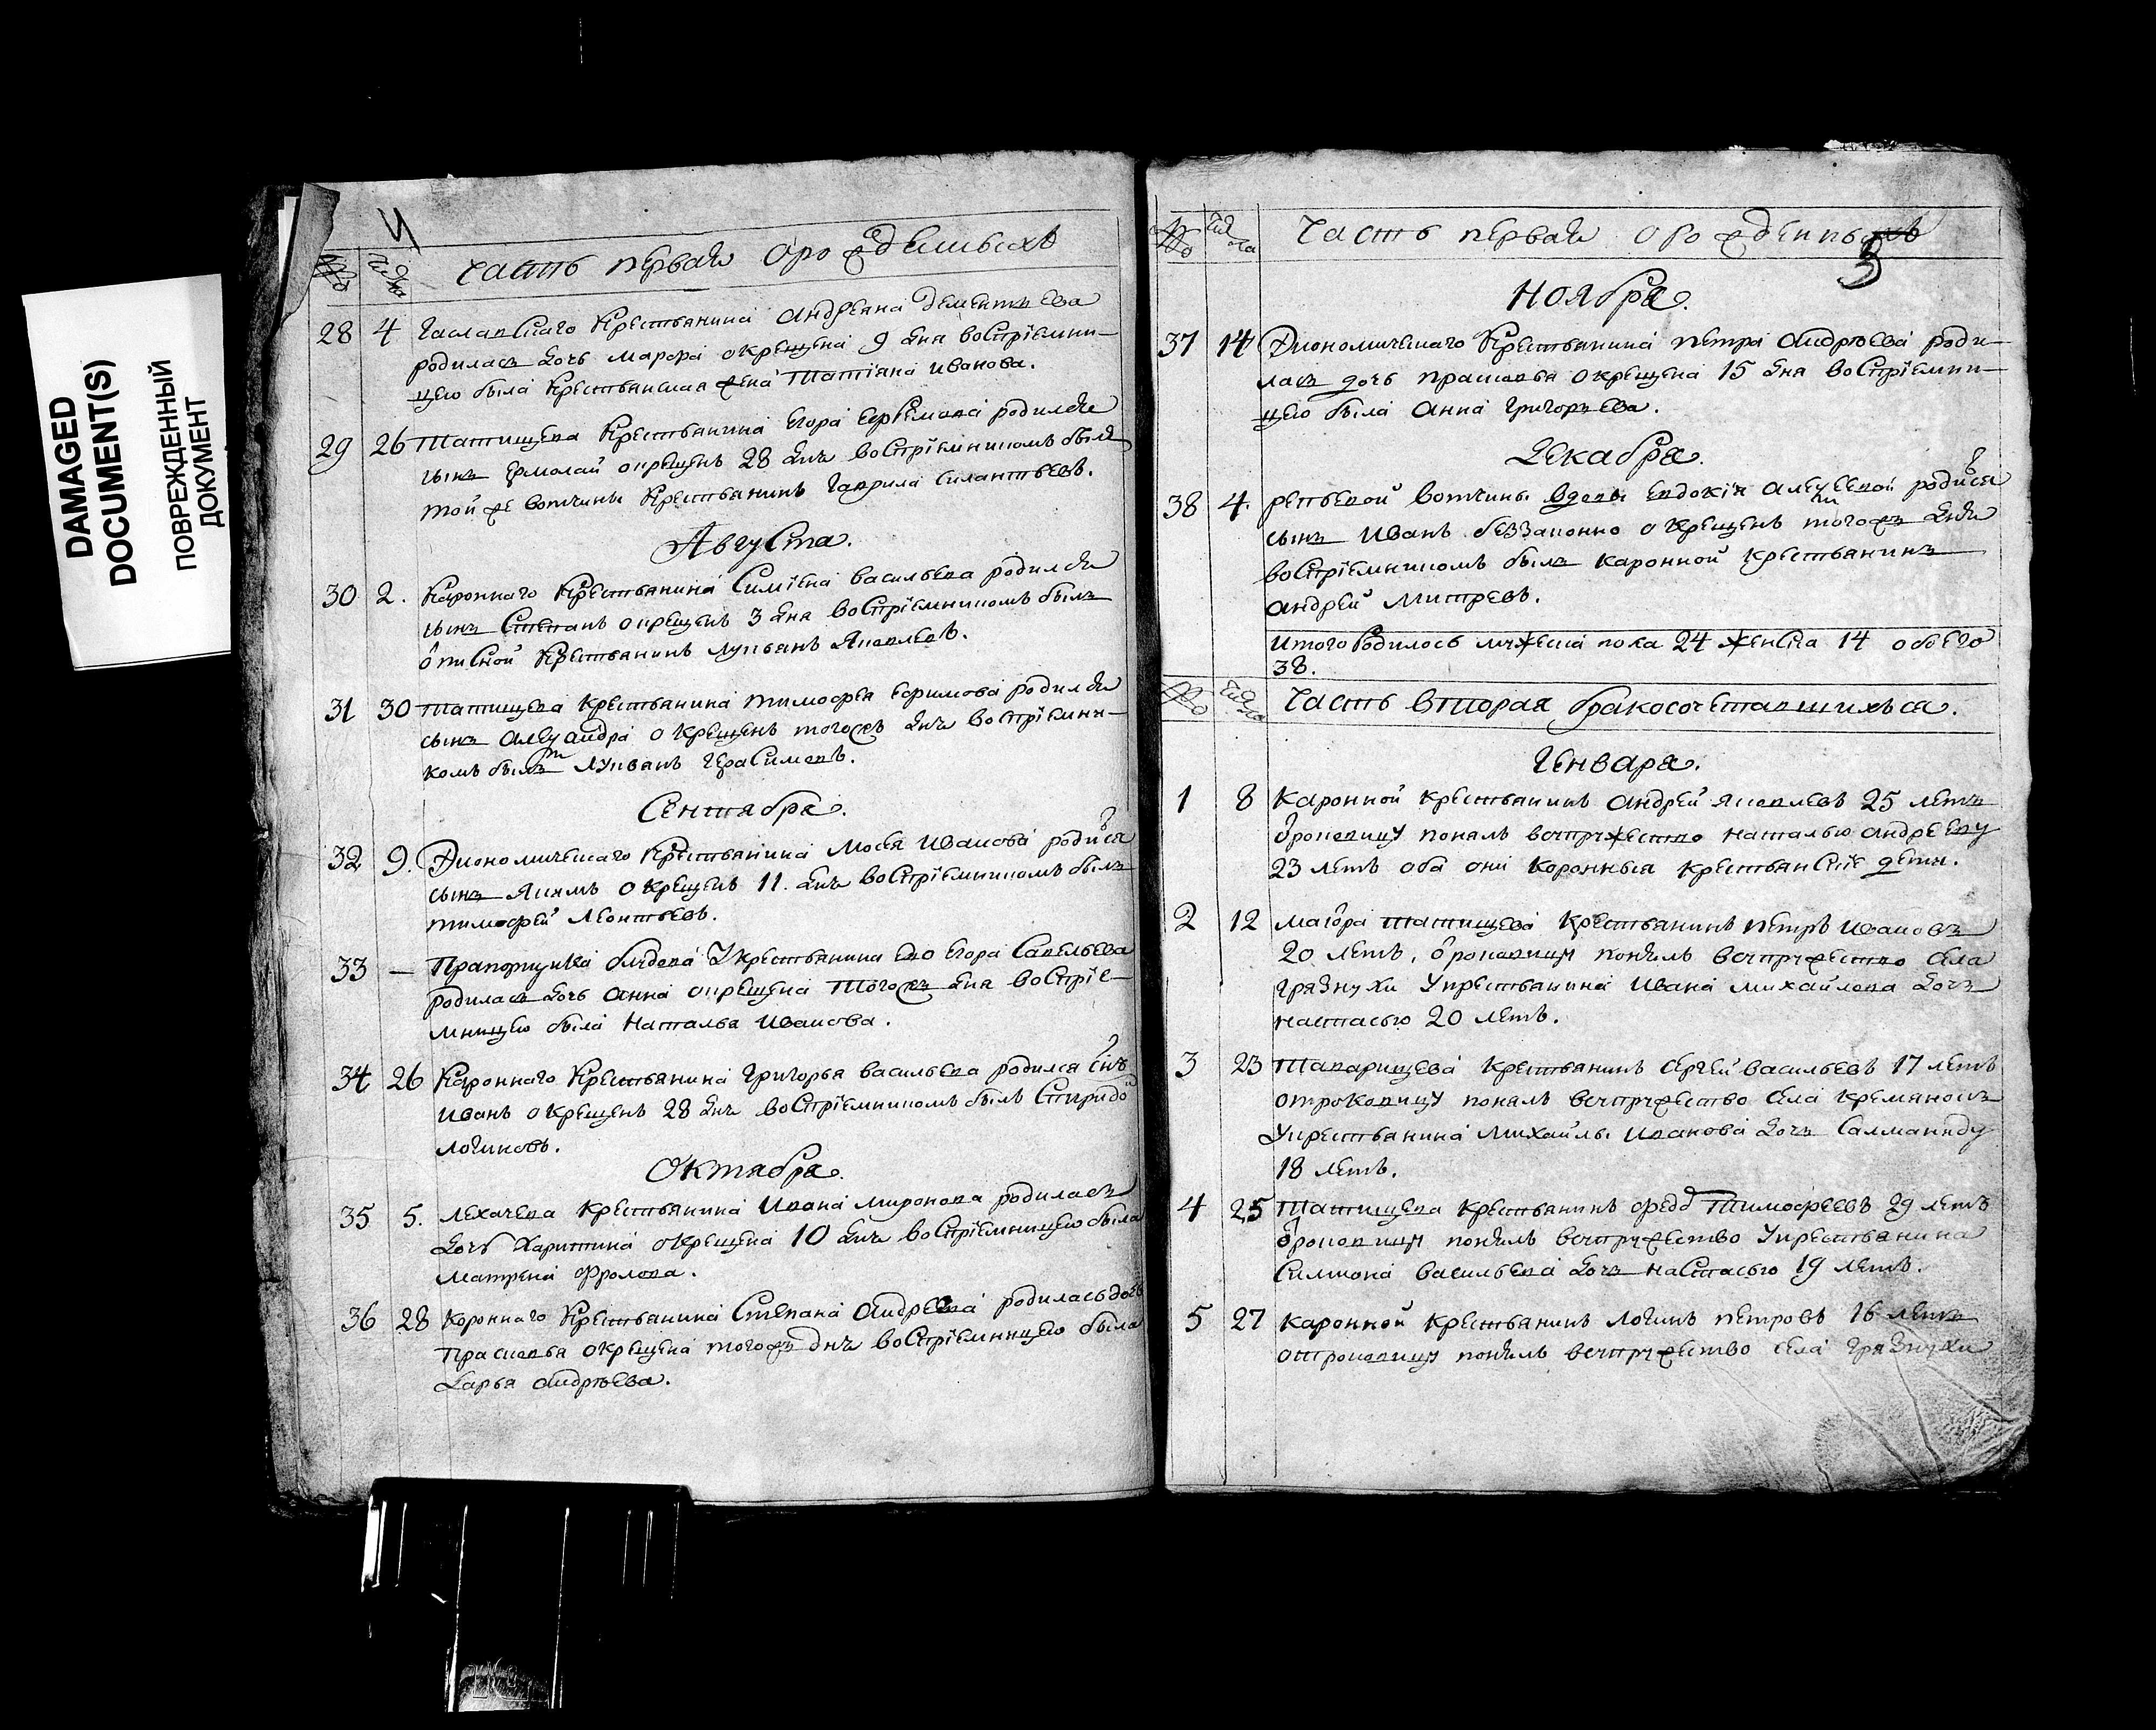 DAMAGED
DOCUMENT(S)
ПОВРЕЖДЕННЫЙ
ДОКУМЕНТ
№ число Часть первая о рожденныхъ
28 4 крестьянина Андреяна Дементьева
родилась дочь Марфа окрещена 9 дня воспрiемни-
цею была крестьянская жена Татiана Иванова.
29 26 Татищева крестьянина Егора Ефремова родился
сынъ Ермолай окрещенъ 28 дня воспрiемникомъ былъ
той же вотчины крестьянинъ Гаврила Силантьевъ.
Августа.
30 2. Каронного крестьянина Симiена Васильева родился
сынъ Степанъ окрещенъ 3 дня воспрiемникомъ былъ
описной крестьянинъ Лукьянъ Яковлевъ.
31 30 Татищева крестьянина Тимофея Ефимова родился
сынъ Алеѯандра окрещенъ тогожъ дня воспрiемни-
комъ былъ Лукьянъ Герасимовъ.
Сентября.
32 9. Экономического крестьянина Мосея Иванова родился
сынъ Якимъ окрещенъ 11. дня воспрiемникомъ былъ
Тимофей Леонтьевъ.
33 — Прапорщика у крестьянина ево Егора Савельева
родилась дочь Анна окрещена тогожъ дня воспрiе-
мницею была Наталья Иванова.
34 26 Каронного крестьянина Григорья Васильева родился снъ
Иванъ окрещенъ 28 дня воспрiемникомъ былъ Спиридо
Логиновъ.
Октября.
35 5. Лехачева крестьянина Ивана Миронова родилась
дочь Харитина окрещена 10 дня воспрiемницею была
Матрена Фролова.
36 28 Коронного крестьянина Степана Андреева родилась дочь
Прасковья окрещена тогожъ дня воспрiемницею была
Дарья Андрѣева.
№ число Часть первая о рожденныхъ
3
Ноября.
37 14 Экономического крестьянина Петра Андрѣева роди-
лась дочь Прасковья окрещена 15 дня воспрiемни-
цею была Анна Григорьева.
Декабря.
38 4. вотчины вдовы Евдокiи Алеѯеевой родился
сынъ Иванъ беззаконно окрещенъ тогожъ дня
воспрiемникомъ былъ каронной крестьянинъ
Андрей Митревъ.
Итого родилось мужеска пола 24 женска 14 обоего
38.
№ число Часть вторая бракосочетавшихъся.
Генваря.
1 8 Каронной крестьянинъ Андрей Яковлевъ 25 летъ
отроковицу поналъ всупружество Наталью Андрееву
23 летъ оба они коронныя крестьянскiе дети.
2 12 Маiора Татищева крестьянинъ Петръ Ивановъ
20 летъ, отроковицу понялъ всупружество села
Грязнухи у крестьянина Ивана Михайлова дочь
Настасью 20 летъ.
3 23 крестьянинъ Сергей Васильевъ 17 летъ
отроковицу поналъ всупружество села Кремянокъ
у крестьянина Михайлы Иванова дочь
18 летъ.
4 25 Татищева крестьянинъ Федо Тимофеевъ 29 летъ
отроковицу понялъ всупружество у крестьянина
Симиона Васильева дочь Настасью 19 летъ.
5 27 Каронной крестьянинъ Логинъ Петровъ 16 летъ
отроковицу понялъ всупружество села Грязнухи